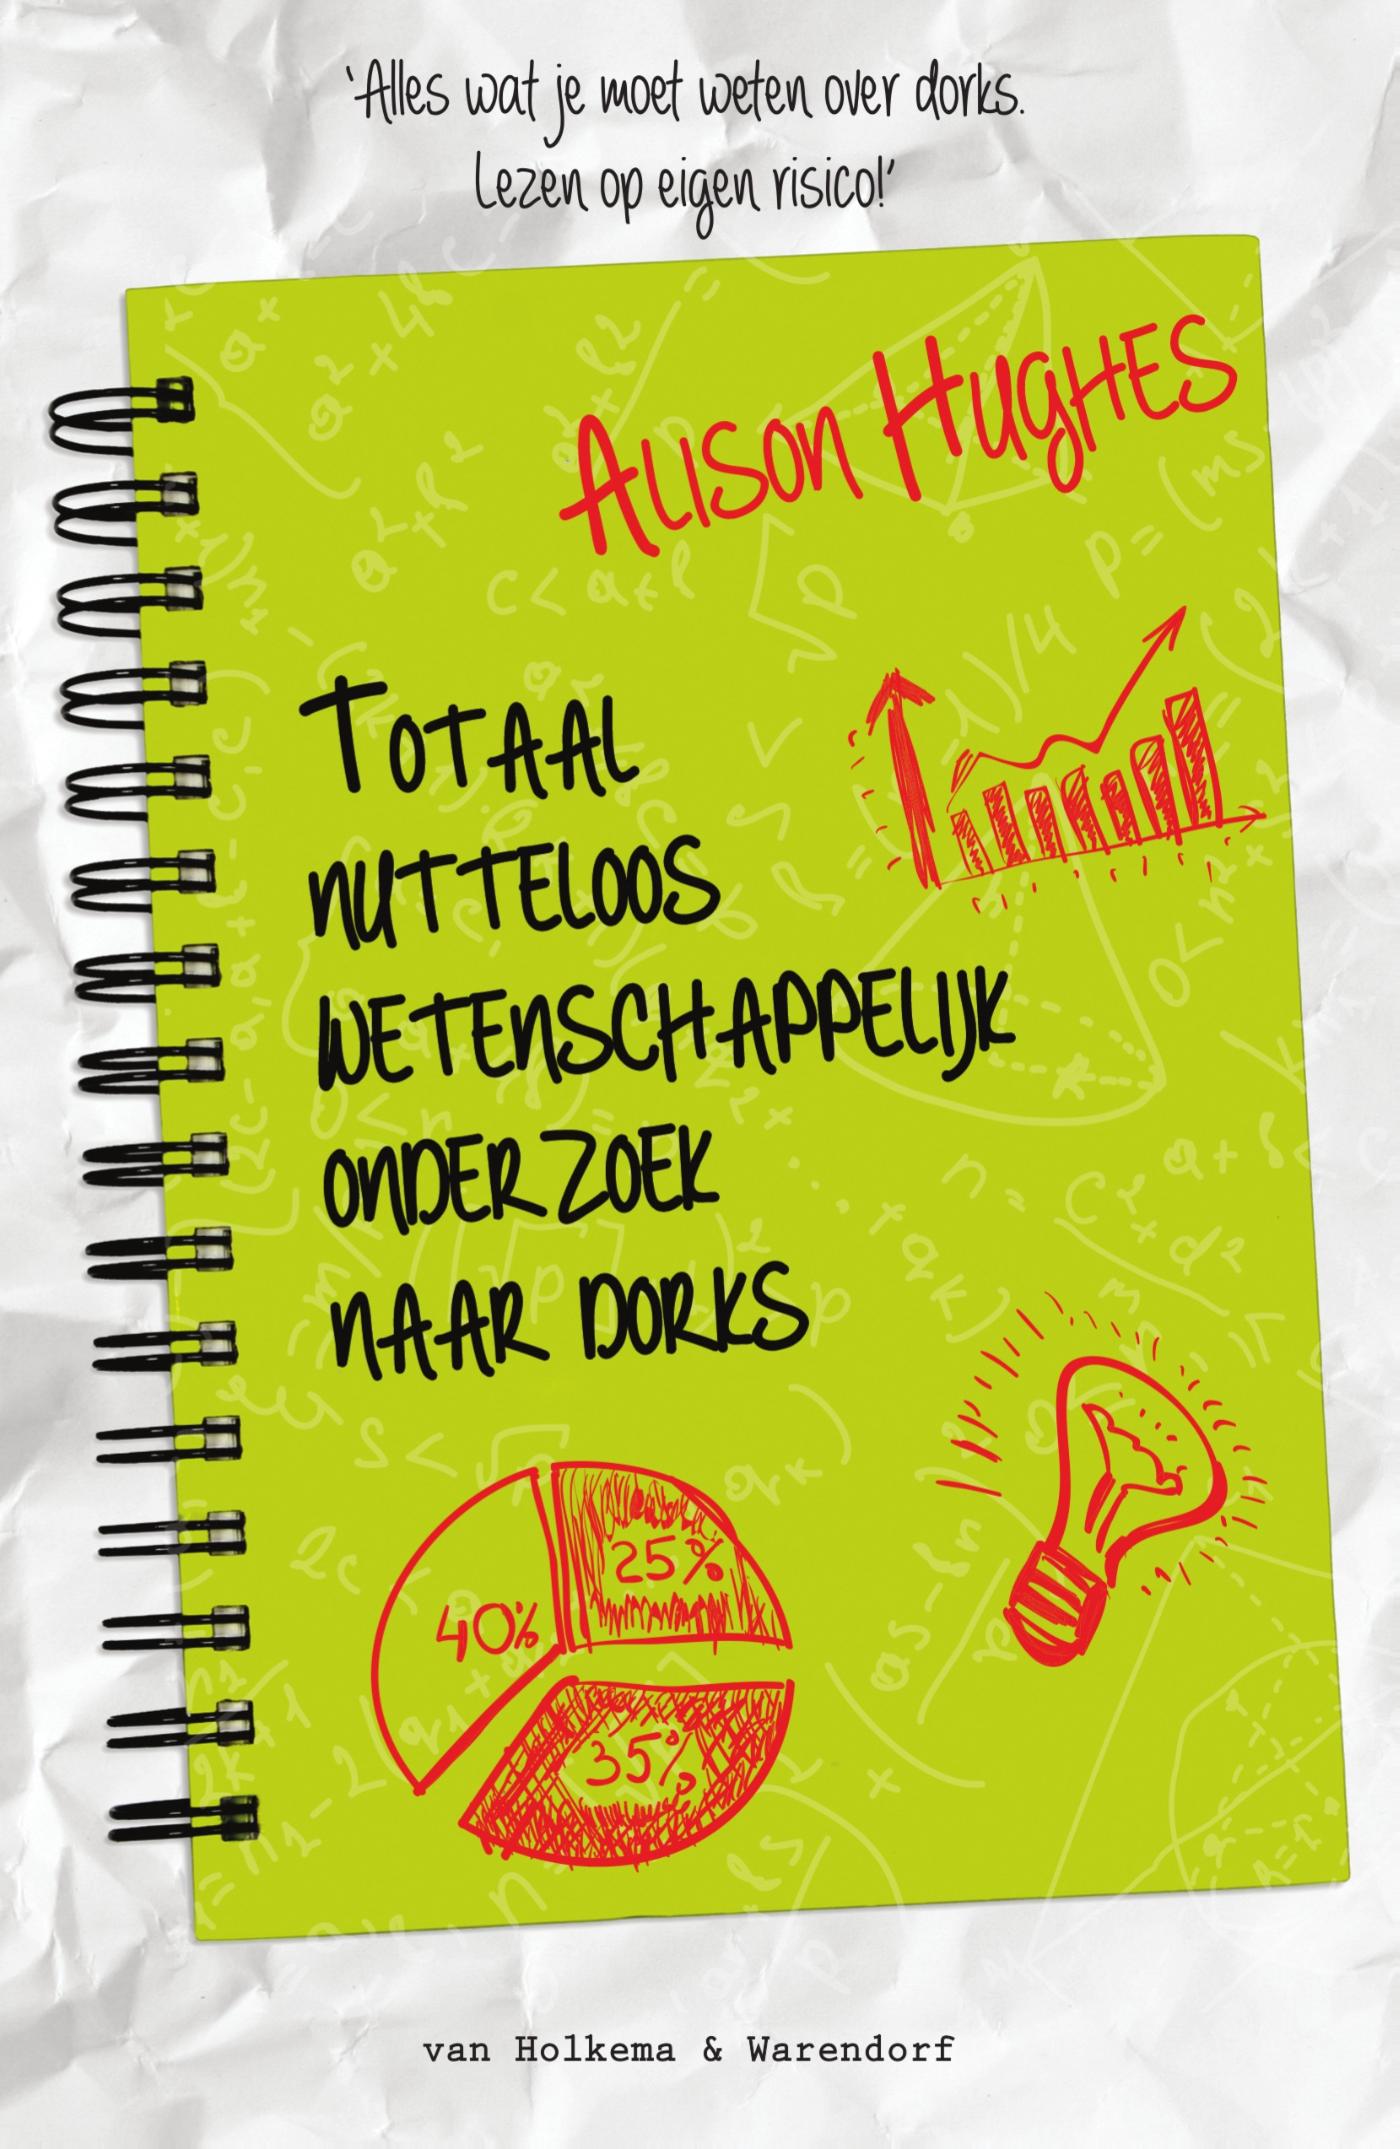 ‘Alles wat je moet weten over dorks.
Lezen op eigen risico!’
Alison Hughes
Totaal
nutteloos
wetenschappelijk
onderzoek
naar dorks
25%
40%
35%
van Holkema & Warendorf